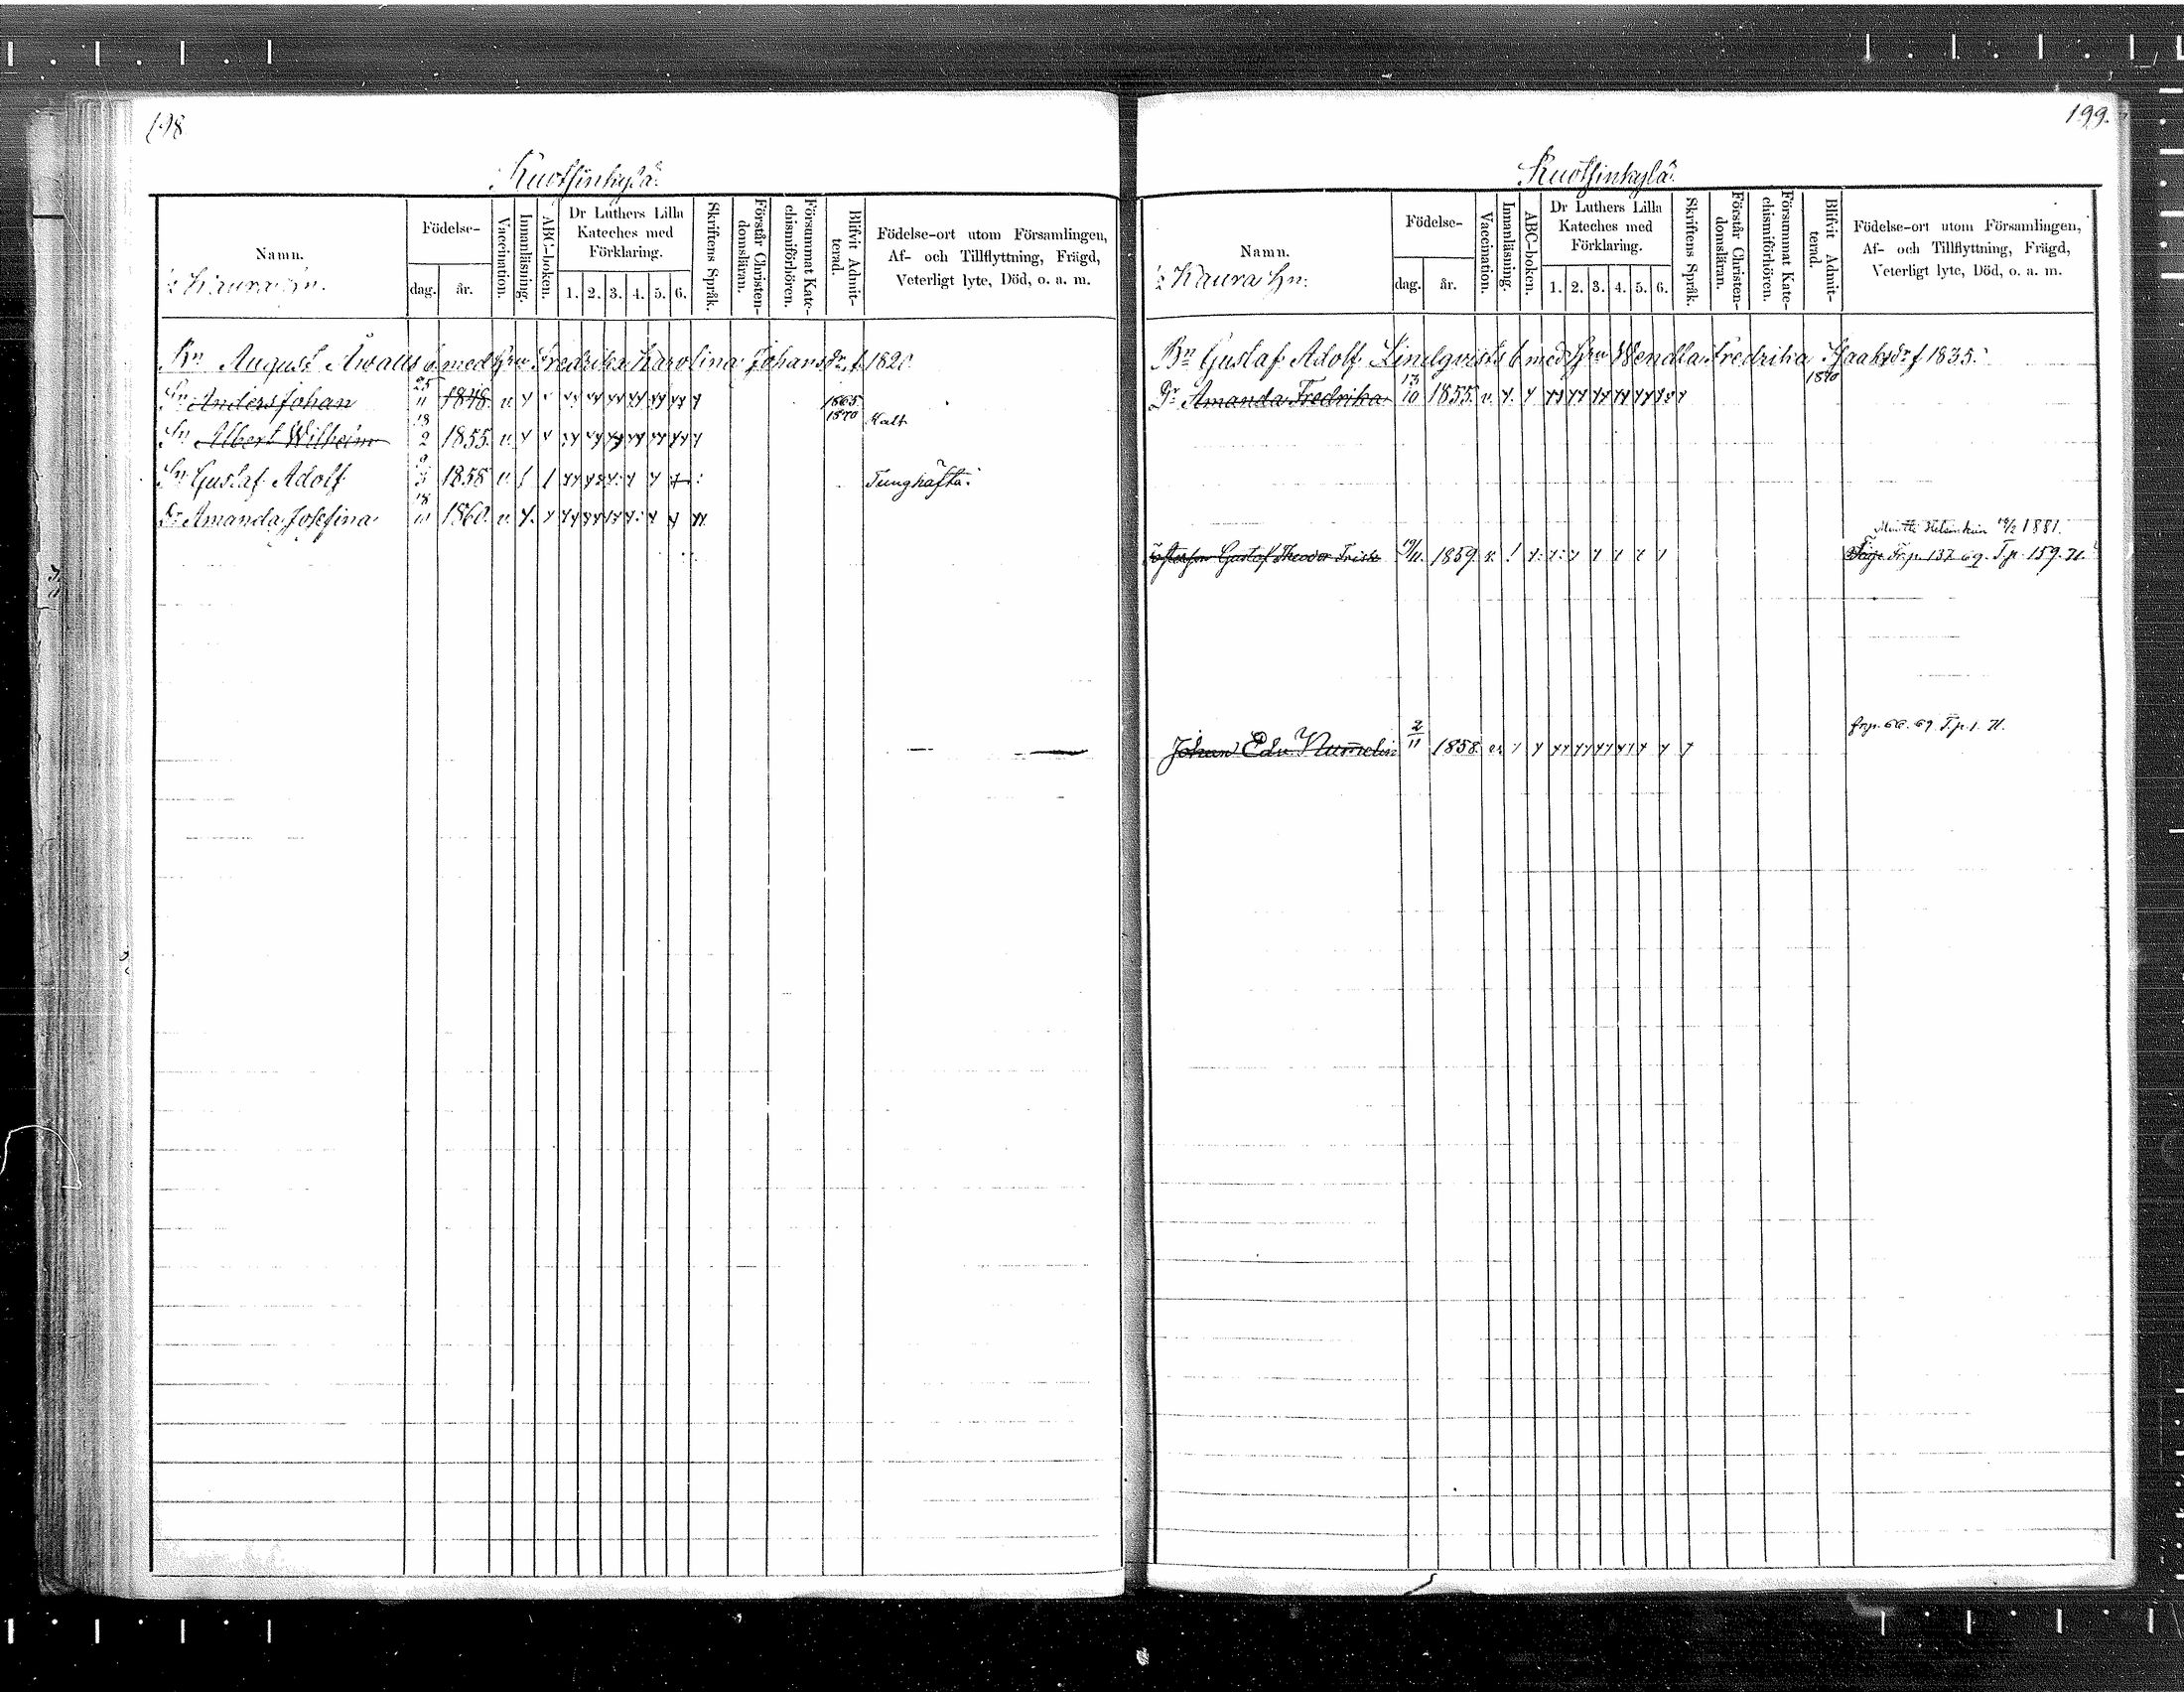 198
Namn.
Födelse-
dag.
år.
Vaccination.
Innanläsning.
ABC-boken.
Dr Luthers Lilla
Kateches med
Förklaring.
1. 2. 3. 4. 5. 6.
Skriftens Språk.
Förstår Christen-
domsläran.
Försummat Kate-
chismiförhören.
Blifvit Admit-
terad.
Födelse-ort utom Församlingen,
Af- och Tillflyttning, Frägd,
Veterligt lyte, Död, o. a. m.
August med Hru Fredrika Karolina Johansdr f. 1820
Sn Anders Johan 25/11 1848 v. 1865
Sn Albert Wilhelm 18/2 1855 v. 1870 Halt
Sn Gustaf Adolf 1858 v. Tunghäfta
Dr Amanda Josefina 18/10 1860 v.
199.
½ Kaura Hn.
Namn.
Födelse-
dag.
år.
Vaccination.
Innanläsning.
ABC-boken.
Dr Luthers Lilla
Kateches med
Förklaring.
1. 2. 3. 4. 5. 6.
Skriftens Språk.
Förstår Christen-
domsläran.
Försummat Kate-
chismiförhören.
Blifvit Admit-
terad.
Födelse-ort utom Församlingen,
Af- och Tillflyttning, Frägd,
Veterligt lyte, Död, o. a. m.
Bn Gustaf Adolf Lindqvists b med Hru Wendla Fredrika Isaksdr f 1835.
Dr Amanda Fredrika 13/10 1855. v. 1870
1881.
Gustaf Theodor 1859 Fr.p. 137. 69. T.p. 159. 71.
Johan Edv. Nummelin 2/11 1858 frp. 66. 69. T.p. 1. 71.